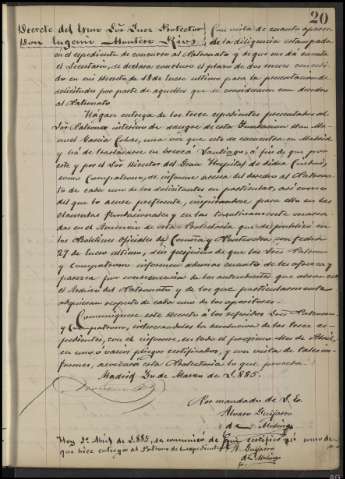 20
Decreto del Ilmo Sor Juez Protector
Don Eugenio Montero Rios
En vista de cuanto aparece
de la diligencia estampada
en el expediente de concurso al Patronato y de que me da cuenta
el Secretario, se declara concluso el plazo de dos meses concedi-
do en mi Decreto de 18 de Enero ultimo para la presentacion de
solicitudes por parte de aquellos que se consideraran con derecho
al Patronato.
Hágase entrega de los trece expedientes presentados al
Sor Patrono interino de sangre de esta Fundacion Don Ma-
nuel Garcia
que se encuentra en Madrid
y há de trasladarse en breve á Santiago, á fin de que por
este y por el Sor Director del Gran Hospital de dicha Ciudad,
como Compatrono, se informe acerca del derecho al Patrona-
to de cada uno de los solicitantes en particular, asi como
del que lo acose preferente, inspirandose para ello en las
clausulas fundacionales y en las
das en el Anuncio de esta Protectoria que se publicó en
los Boletines oficiales de Coruña y Pontevedra con fecha
27 de Enero ultimo, sin perjuicio de que los Sres Patrono
y Compatrono informen además cuanto se les ofrezca y
parezca por consecuencia de los antecedentes que obren en
el Archivo del Patronato y de los que particularmente
adquieran respecto de cada uno de los opositores.
Comuniquese este decreto á los referidos Sres Patrono
y Compatrono, interesandoles la devolucion de los trece ex-
pedientes, con el informe, en todo el proximo Mes de Abril,
en uno ó varios pliegos certificados, y con vista de tales in-
formes, acordará esta Protectoria lo que proceda.
Madrid de Marzo de 1.885.
Por mandado de S. E.
Alvaro Guijarro
de Medinga
Hoy 1º Abril de 1.885, se comunicó de que certifico asi como de
que hice entrega al Patrono de los expedientes
A. Guijarro
de Medinga